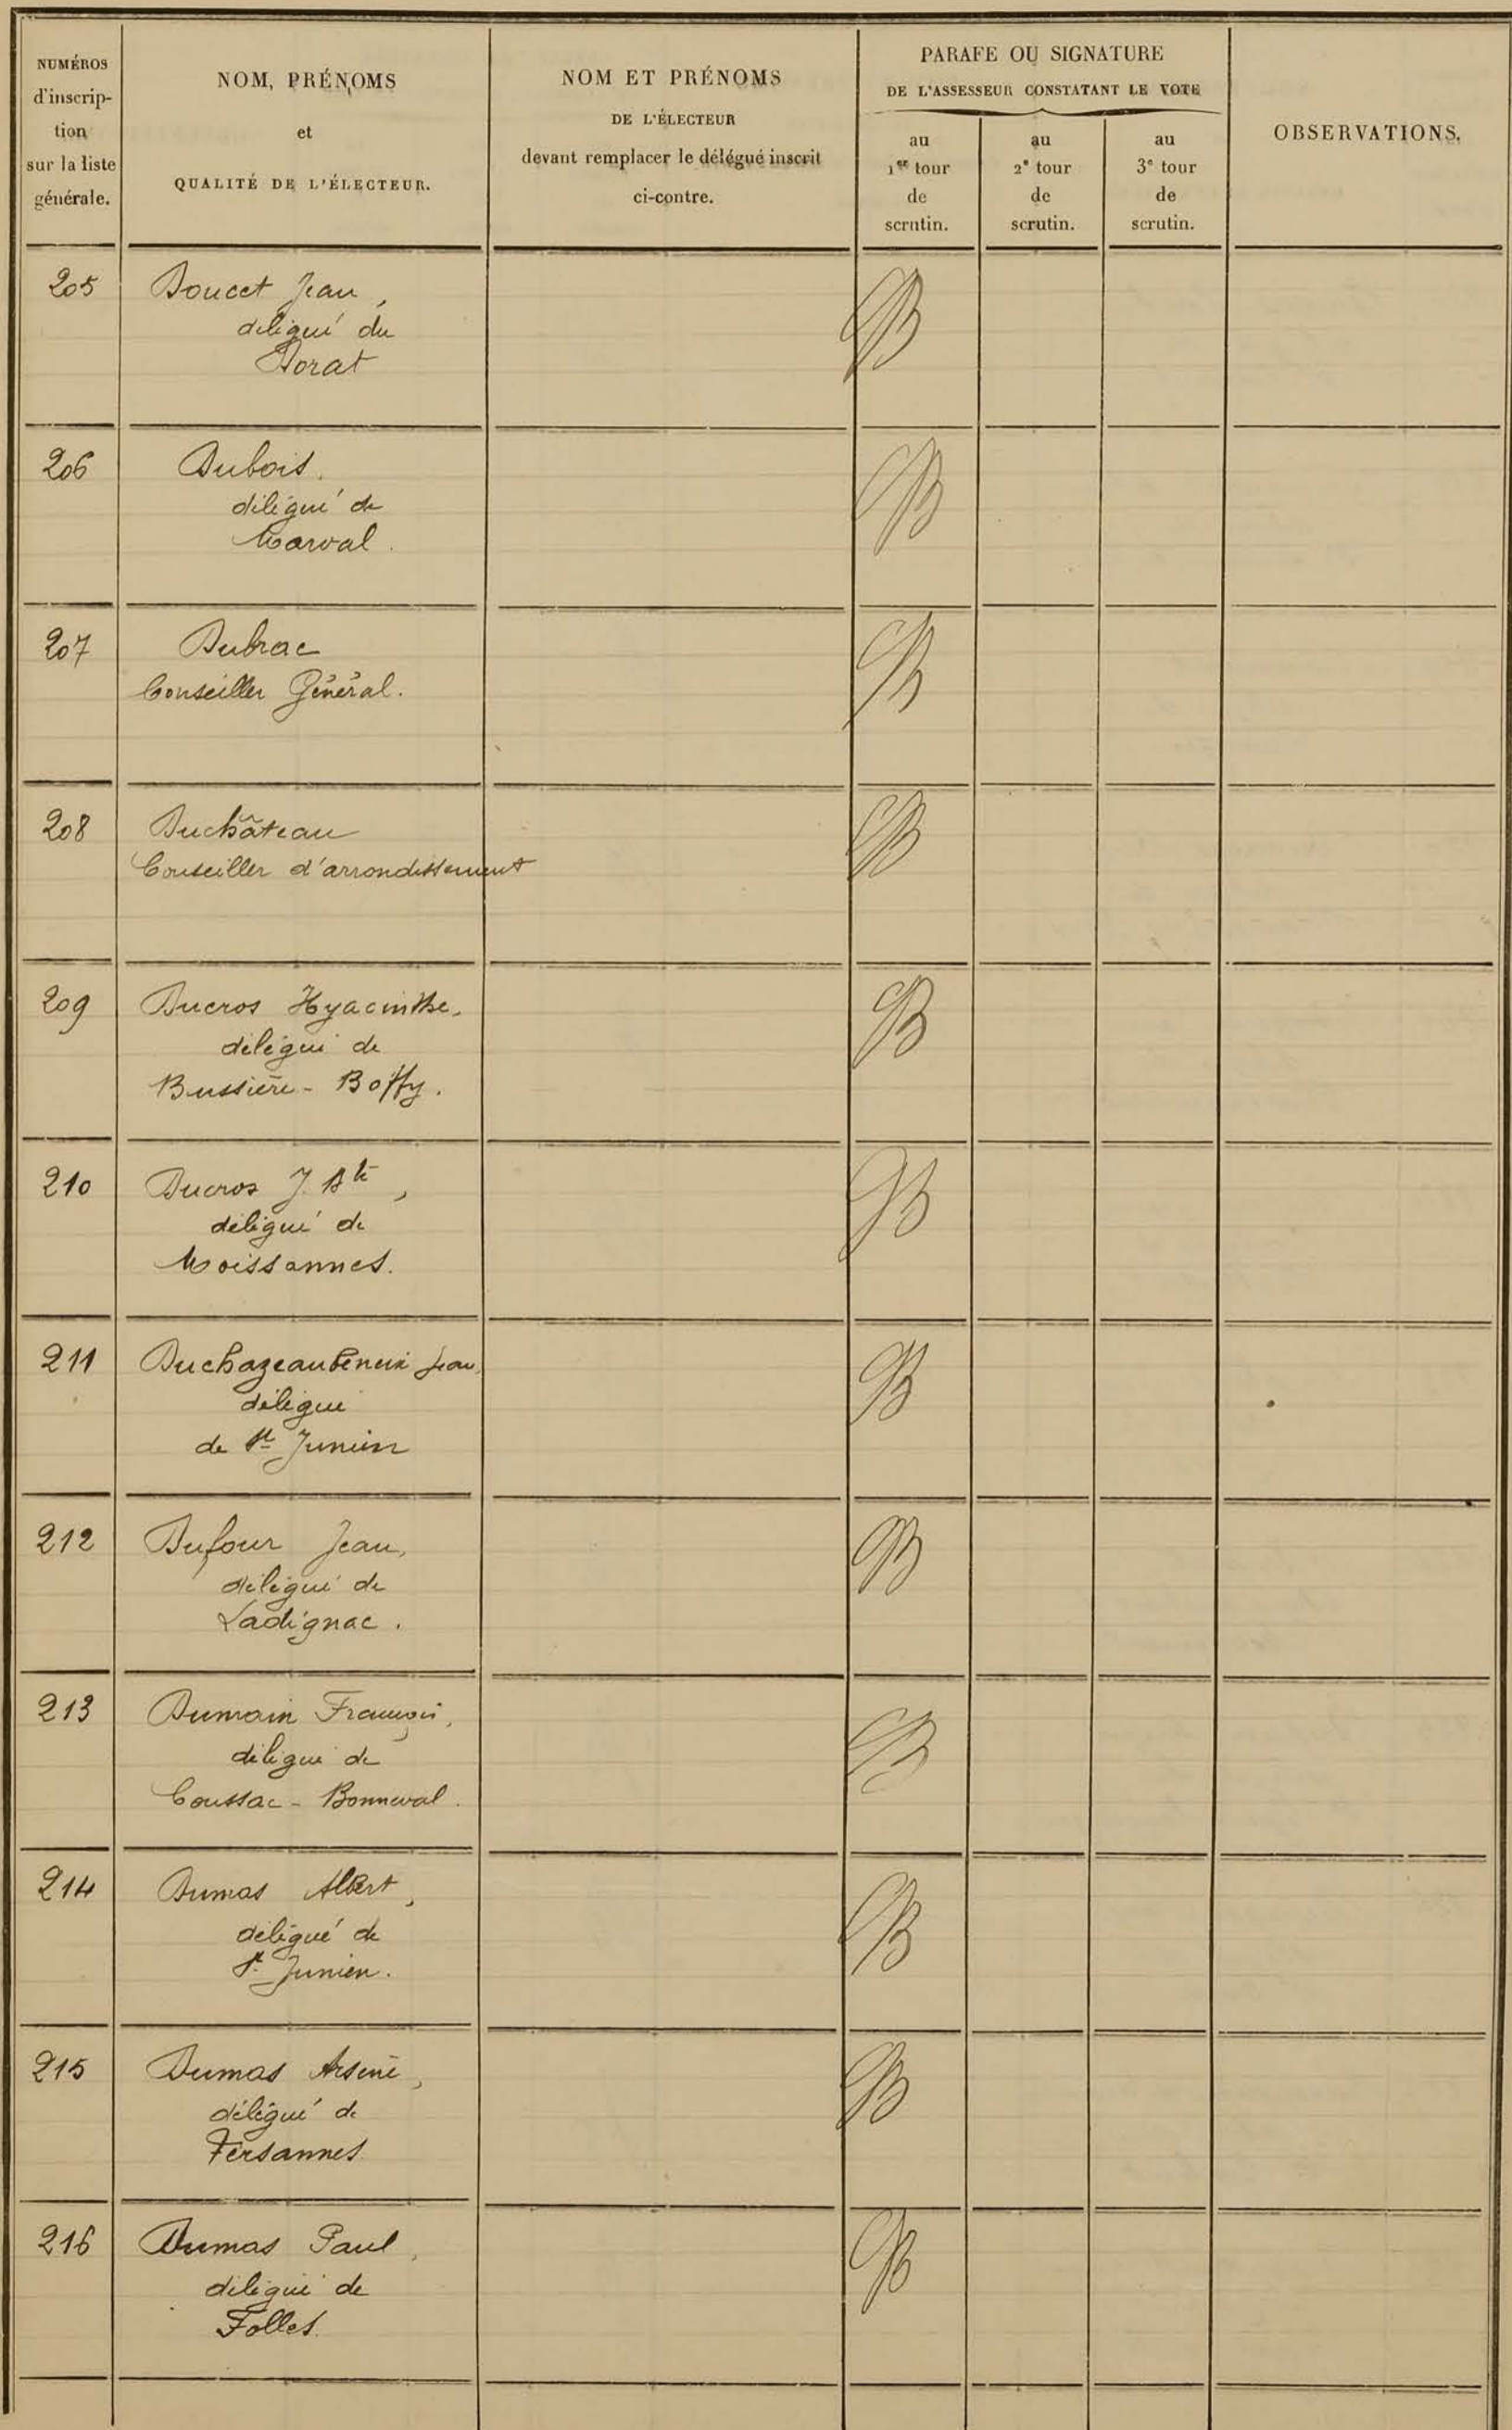 NUMÉROS
d'inscrip-
tion
sur la liste
générale.
NOM, PRÉNOMS
et
QUALITÉ DE L'ÉLECTEUR.
NOM ET PRÉNOMS
DE L'ÉLECTEUR
devant remplacer le délégué inscrit
ci-contre.
PARAFE OU SIGNATURE
DE L'ASSESSEUR CONSTATANT LE VOTE
au
1er tour
de
scrutin.
au
2e tour
de
scrutin.
au
3e tour
de
scrutin.
OBSERVATIONS.
205 Doucet Jean,
délégué du
Dorat
B
206 Dubois,
délégué de
Marval.
B
207 Dubrac
Conseiller Général.
B
208 Duchâteau
Conseiller d'arrondissement
B
209 Ducros Hyacinthe,
délégué de
Bussière-Boffy.
B
210 Ducros J. Bte,
délégué de
Moissannes.
B
211 Jean,
délégué
de St Junien
B
212 Dufour Jean,
délégué de
Ladignac.
B
213 Dumain François,
délégué de
Coussac-Bonneval.
B
214 Dumas Albert,
délégué de
St Junien.
B
215 Dumas Arsène,
délégué de
Tersannes
B
216 Dumas Paul,
délégué de
Folles.
B